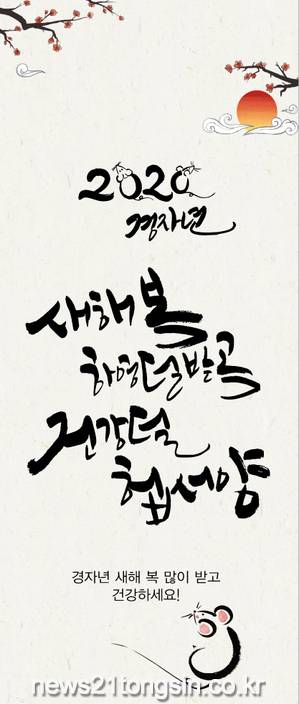 2020
경자년
새해 복
하영덜 받곡
건강덜
헙서양
경자년 새해 복 많이 받고
건강하세요!
news21tongsin.co.kr